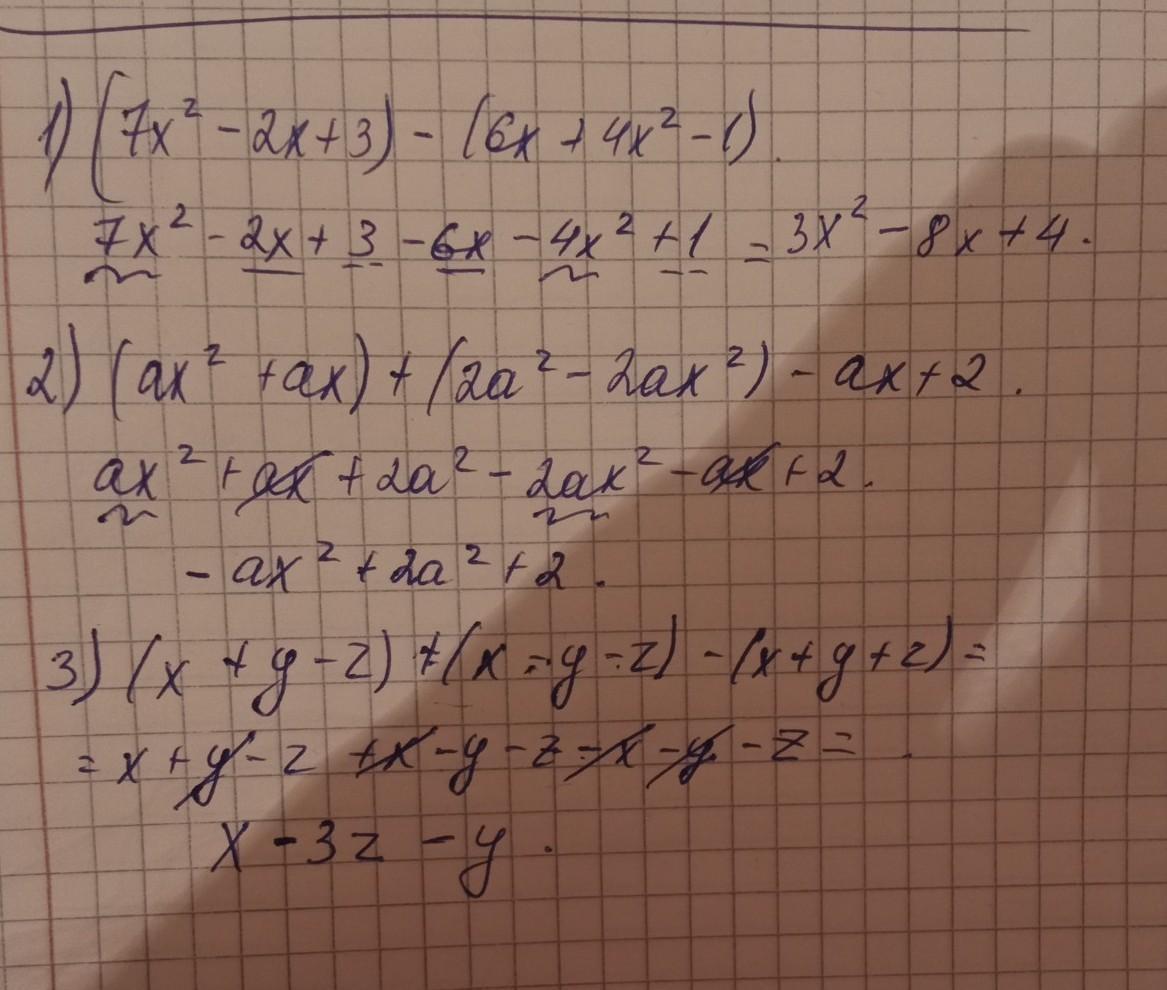 1) (7x² - 2x + 3) - (6x + 4x² - 1).
7x² - 2x + 3 - 6x - 4x² + 1 = 3x² - 8x + 4.
2) (ax² + ax) + (2a² - 2ax²) - ax + 2.
ax² + ax + 2a² - 2ax² - ax + 2.
- ax² + 2a² + 2.
3) (x + y - z) + (x - y - z) - (x + y + z) =
= x + y - z + x - y - z - x - y - z =
x - 3z - y.